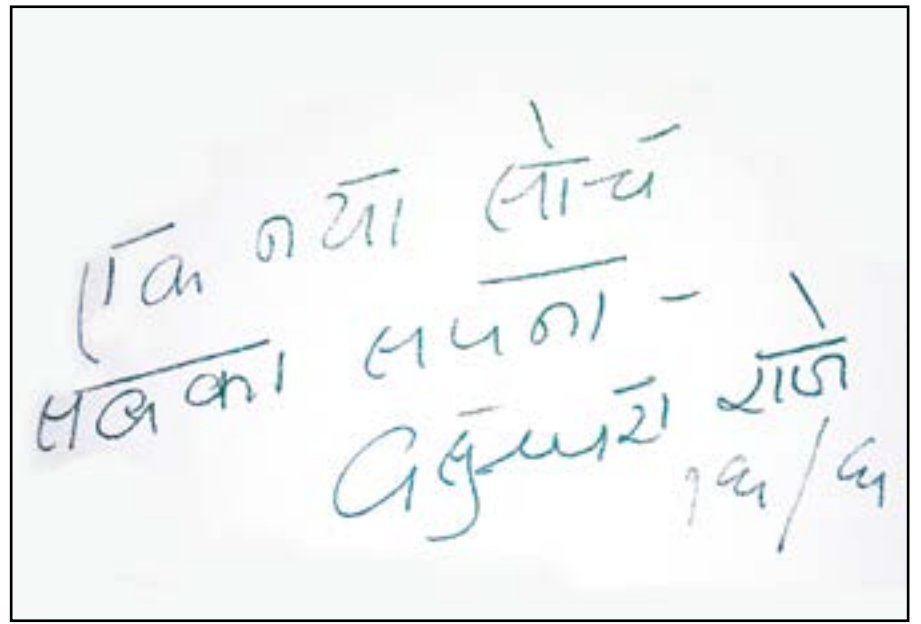 एक नया सोच
सबका सपना -
वसुन्धरा राजे